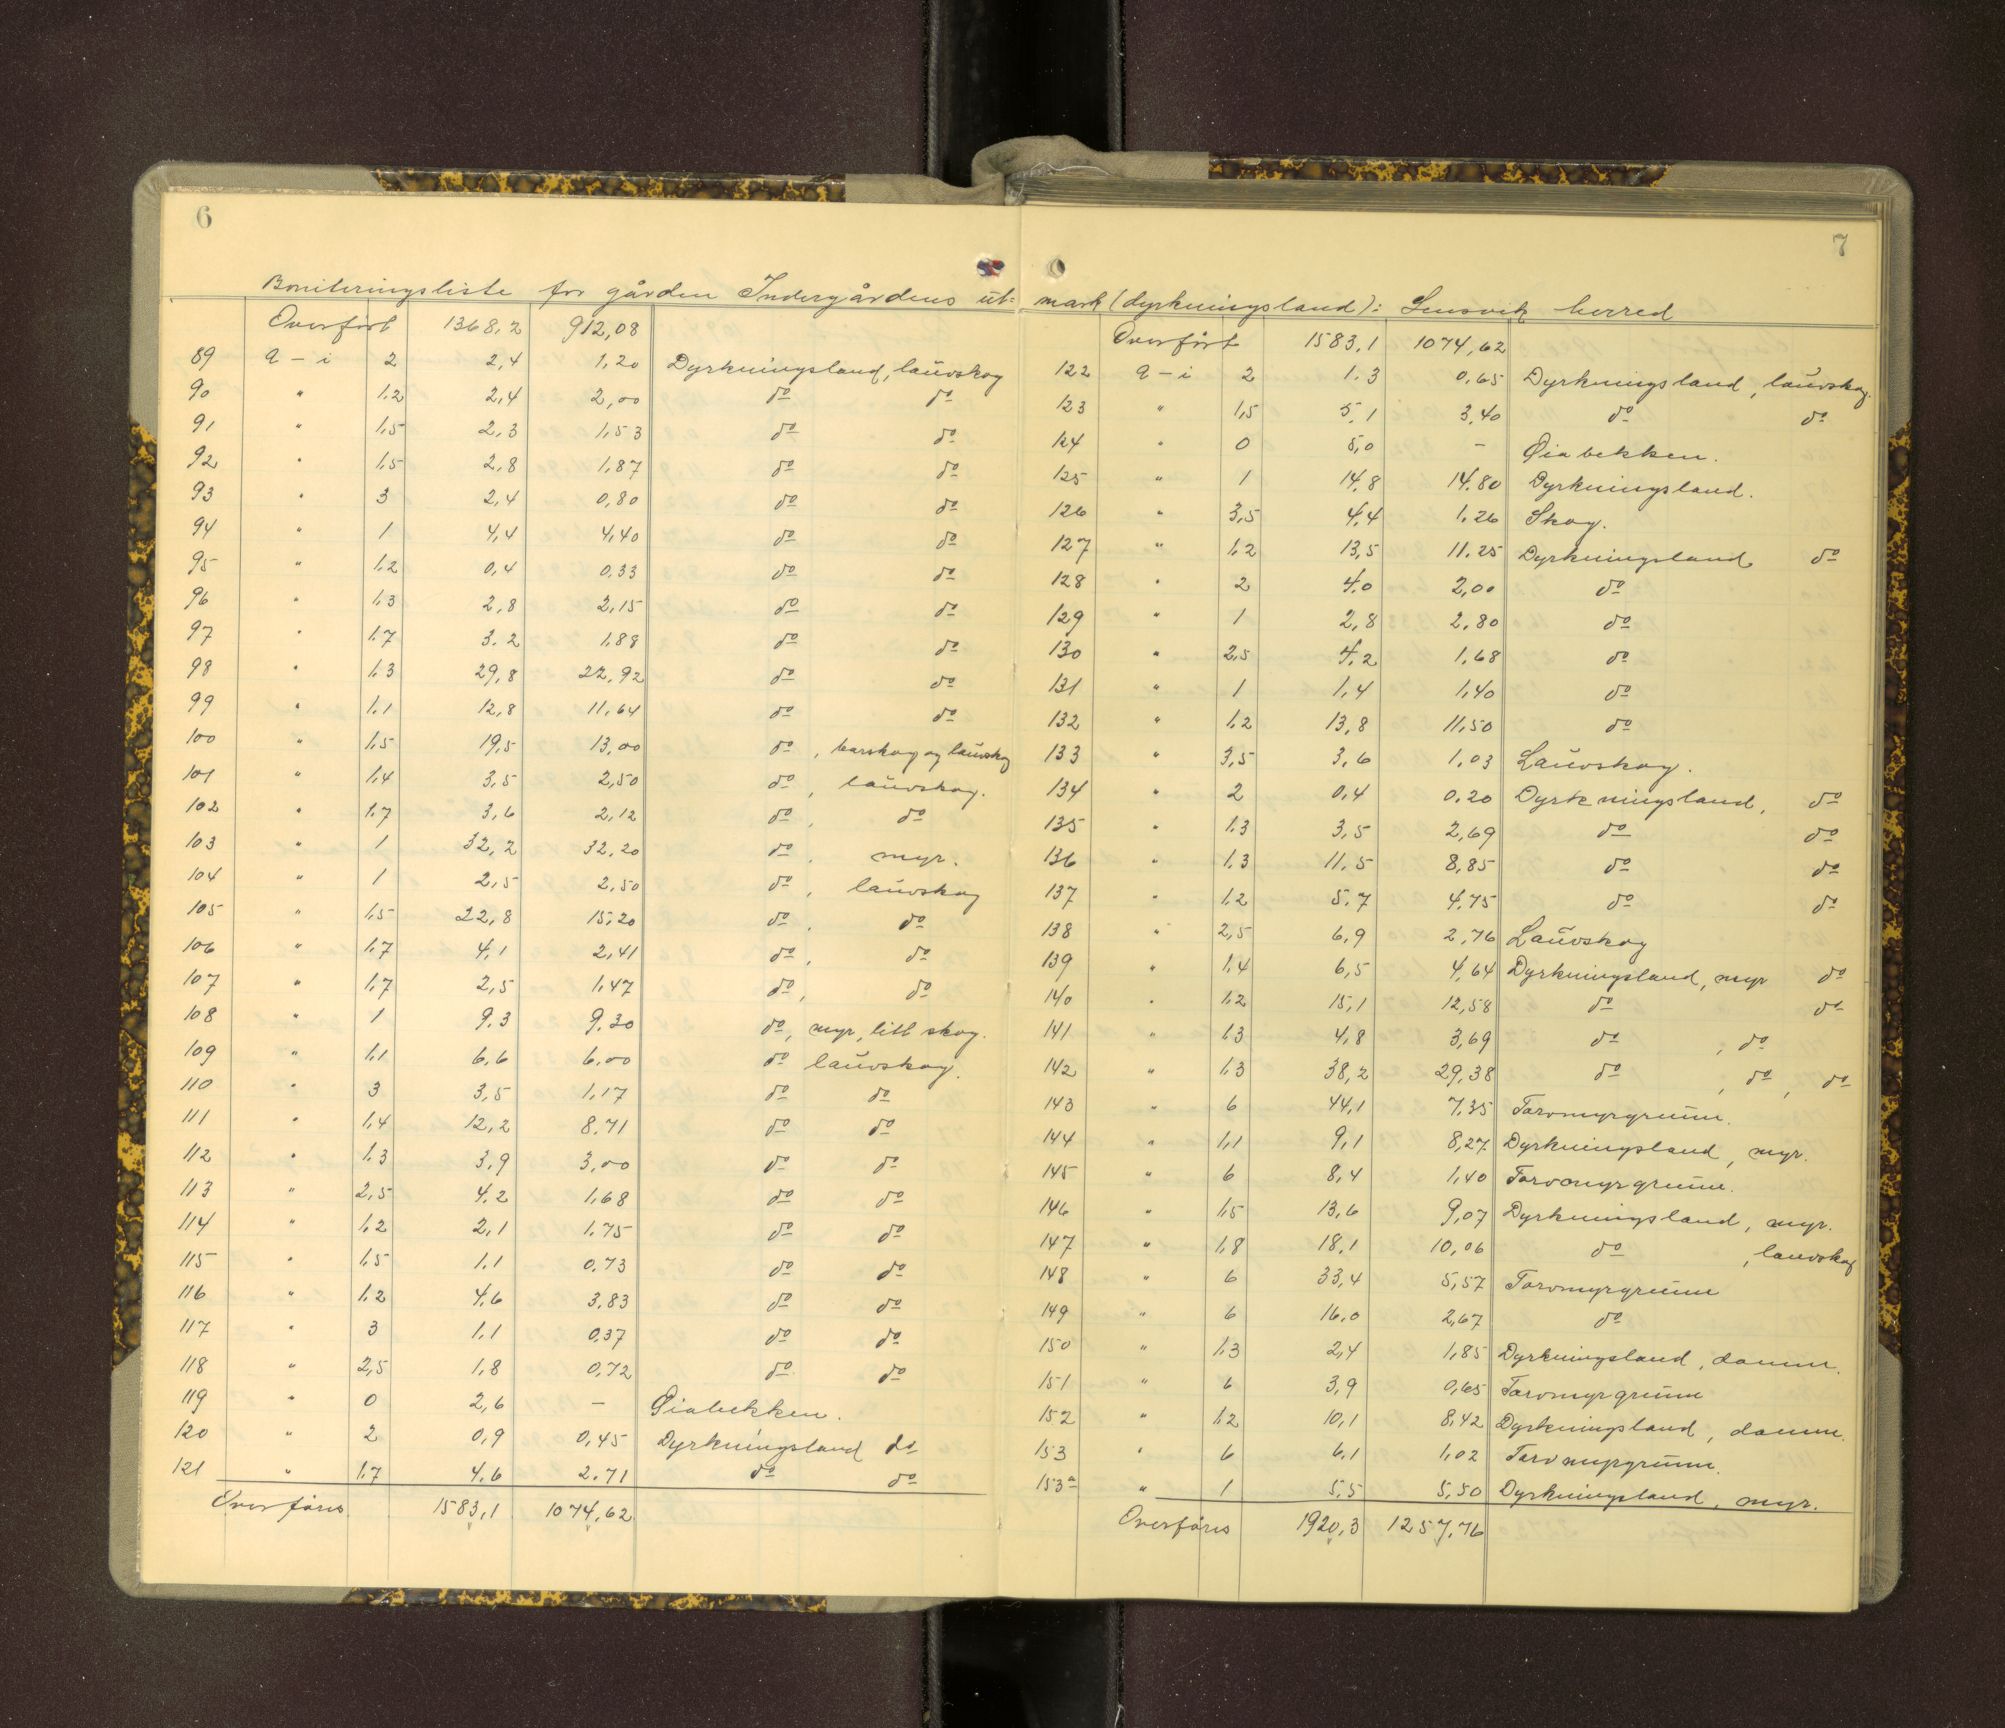 6
Boniteringsliste for gården Indergårdens ut=
Overført 1368,2 912,08
89 a-i 2 2,4 1,20 Dyrkningsland, lauvskog
90 " 1,2 2,4 2,00 do do
91 " 1,5 2,3 1,53 do do
92 " 1,5 2,8 1,87 do do
93 " 3 2,4 0,80 do do
94 " 1 4,4 4,40 do do
95 " 1,2 0,4 0,33 do do
96 " 1,3 2,8 2,15 do do
97 " 1,7 3,2 1,88 do do
98 " 1,3 29,8 22,92 do do
99 " 1,1 12,8 11,64 do do
100 " 1,5 19,5 13,00 do, barskog og lauvskog
101 " 1,4 3,5 2,50 do, lauvskog.
102 " 1,7 3,6 2,12 do, do
103 " 1 32,2 32,20 do, myr.
104 " 1 2,5 2,50 do, lauvskog
105 " 1,5 22,8 15,20 do, do
106 " 1,7 4,1 2,41 do, do
107 " 1,7 2,5 1,47 do, do
108 " 1 9,3 9,30 do, myr, litt skog.
109 " 1,1 6,6 6,00 do lauvskog.
110 " 3 3,5 1,17 do do
111 " 1,4 12,2 8,71 do do
112 " 1,3 3,9 3,00 do do
113 " 2,5 4,2 1,68 do do
114 " 1,2 2,1 1,75 do do
115 " 1,5 1,1 0,73 do do
116 " 1,2 4,6 3,83 do do
117 " 3 1,1 0,37 do do
118 " 2,5 1,8 0,72 do do
119 " 0 2,6 - Øiabekken.
120 " 2 0,9 0,45 Dyrkningsland do
121 " 1,7 4,6 2,71 do do
Overføres 1583,1 1074,62
7
mark (dyrkningsland): Lensvik herred
Overført 1583,1 1074,62
122 a-i 2 1,3 0,65 Dyrkningsland, lauvskog.
123 " 1,5 5,1 3,40 do do
124 " 0 5,0 - Øiabekken.
125 " 1 14,8 14,80 Dyrkningsland.
126 " 3,5 4,4 1,26 Skog.
127 " 1,2 13,5 11,25 Dyrkningsland do
128 " 2 4,0 2,00 do
129 " 1 2,8 2,80 do
130 " 2,5 4,2 1,68 do
131 " 1 1,4 1,40 do
132 " 1,2 13,8 11,50 do
133 " 3,5 3,6 1,03 Lauvskog.
134 " 2 0,4 0,20 Dyrkningsland, do
135 " 1,3 3,5 2,69 do do
136 " 1,3 11,5 8,85 do do
137 " 1,2 5,7 4,75 do do
138 " 2,5 6,9 2,76 Lauvskog
139 " 1,4 6,5 4,64 Dyrkningsland, myr do
140 " 1,2 15,1 12,58 do do
141 " 1,3 4,8 3,69 do, do
142 " 1,3 38,2 29,38 do, do, do
143 " 6 44,1 7,35 Torvmyrgrunn.
144 " 1,1 9,1 8,27 Dyrkningsland, myr.
145 " 6 8,4 1,40 Torvmyrgrunn.
146 " 1,5 13,6 9,07 Dyrkningsland, myr.
147 " 1,8 18,1 10,06 do, lauvskog
148 " 6 33,4 5,57 Torvmyrgrunn
149 " 6 16,0 2,67 do
150 " 1,3 2,4 1,85 Dyrkningsland, damm.
151 " 6 3,9 0,65 Torvmyrgrunn
152 " 1,2 10,1 8,42 Dyrkningsland, damm.
153 " 6 6,1 1,02 Torvmyrgrunn.
153a " 1 5,5 5,50 Dyrkningsland, myr.
Overføres 1920,3 1257,76